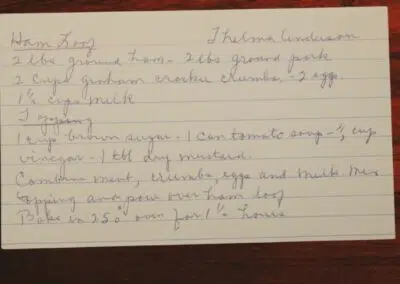 Ham Loaf Thelma Anderson
2 lbs ground ham - 2 lbs ground pork
2 cups graham cracker crumbs - 2 eggs.
1 1/2 cups milk
Topping
1 cup brown sugar - 1 can tomato soup - cup
vinegar - 1 tbl dry mustard.
Combine meat, crumbs, eggs and milk. Mix
topping and pour over ham loaf
Bake in 250° oven for 1 1/2 hours